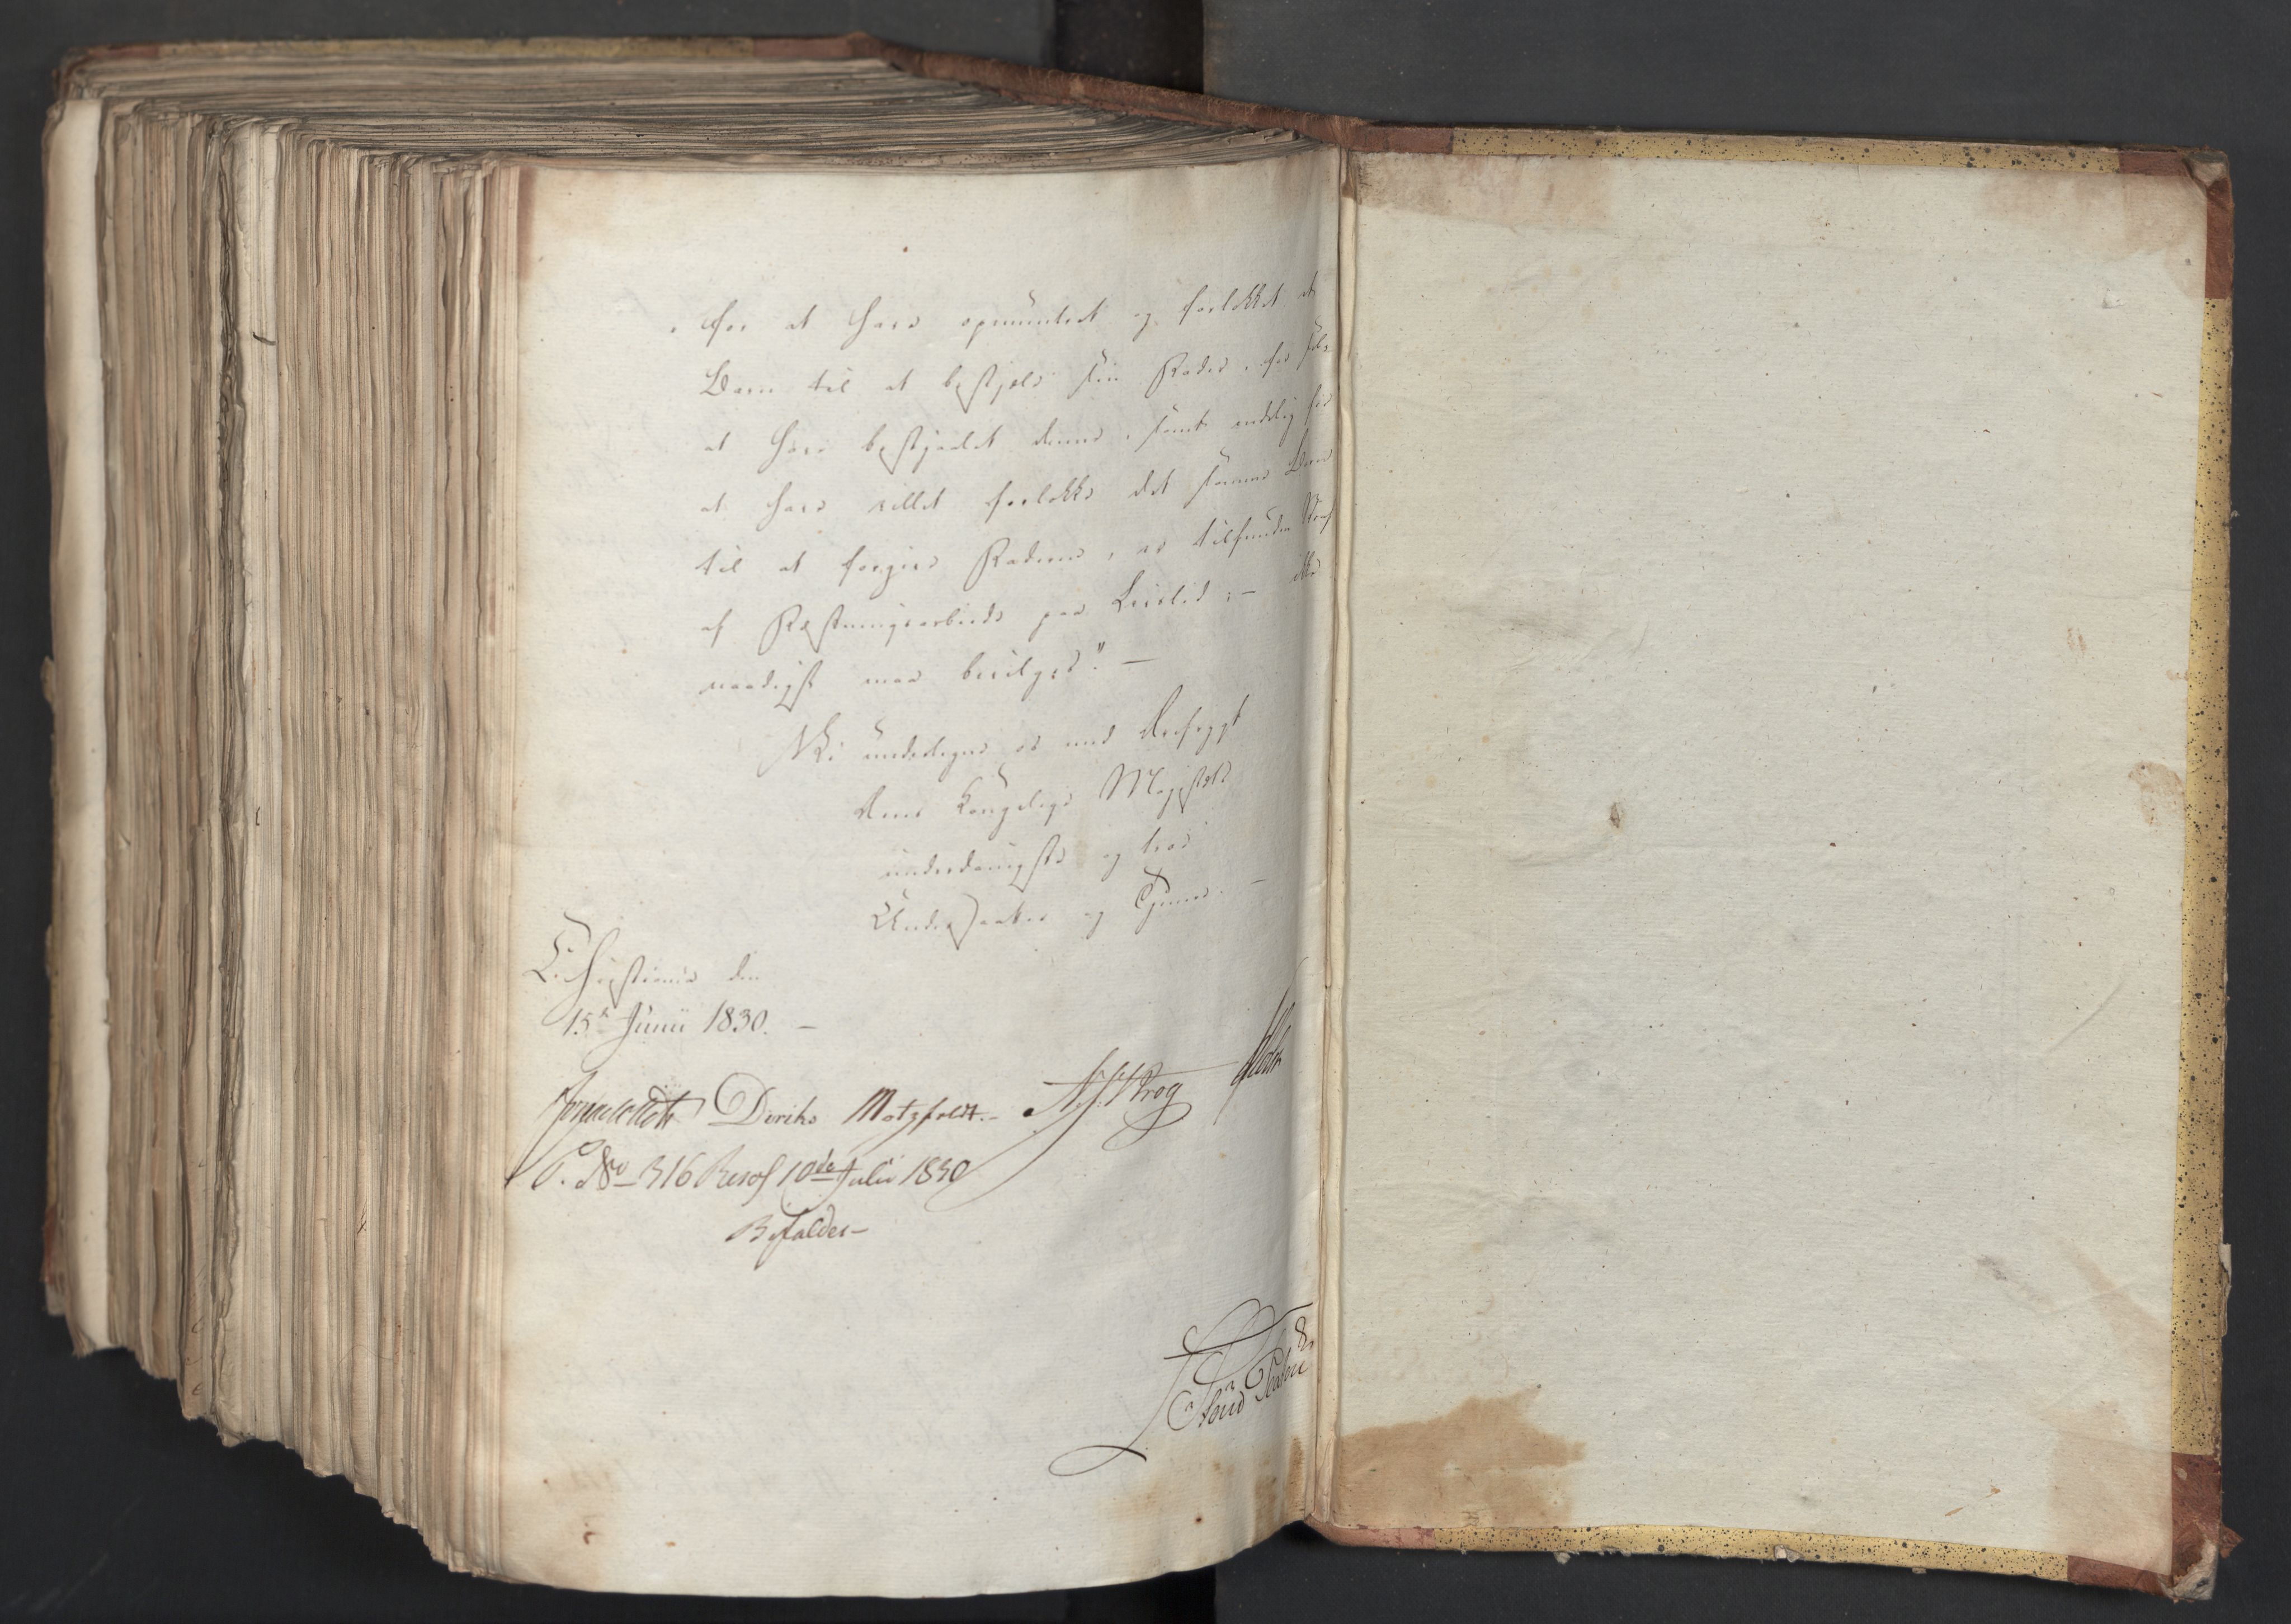 for at have opmuntret og forlokket et
Barn til at bestjæle sin Fader, for selv
at have bestjaalet denne, samt endelig for
at have villet forlokke det samme Barn
til at forgive Faderen, er tilfunden Straf
af Fæstningsarbeide paa Livstid; – ikke
naadigst maa bevilges". –
Vi undertegne os med Ærefrygt
Deres Kongelige Majestæts
underdanigste og troe
Undersaatter og Tjenere. –
Christiania den
15de Junii 1830. –
Diriks Motzfeldt. – Krog
P. No 316 Resol 10de Julii 1830
Bifaldes –